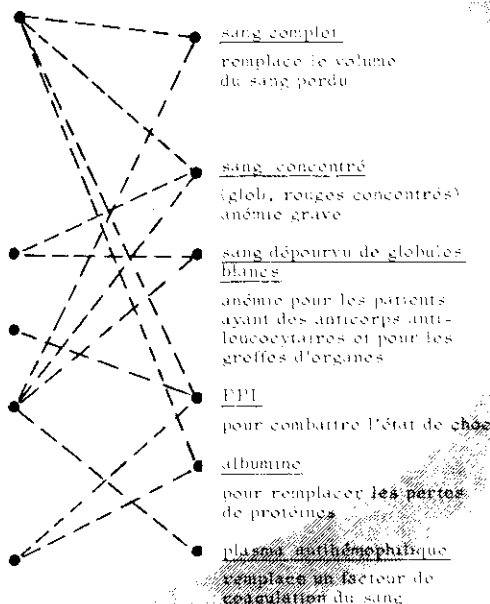 sang complet
remplace le volume
du sang perdu
sang concentré
(glob. rouges concentrés)
anémie grave
sang dépourvu de globules
blancs
anémie pour les patients
ayant des anticorps anti-
leucocytaires et pour les
greffes d'organes
PPI
pour combattre l'état de choc
albumine
pour remplacer les pertes
de protéines
plasma antihémophilique
remplace un facteur de
coagulation du sang